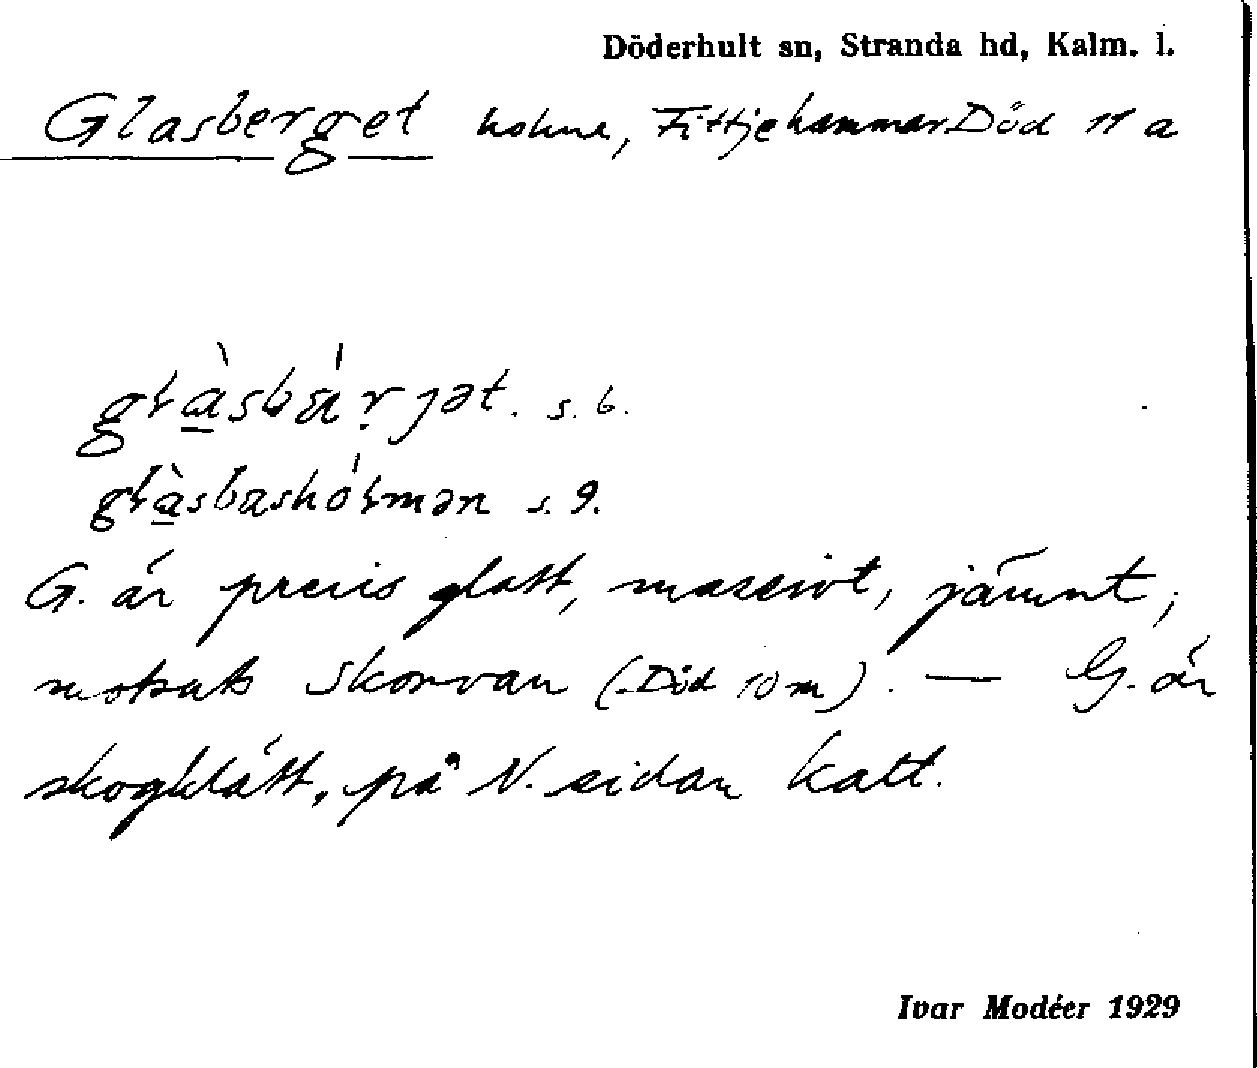 Döderhult sn, Stranda hd, Kalm. l.
Glasberget holme, Fittjehammar Död 11 a
glàsbárjət. s. 6.
glàsbashólmən s. 9.
G. är precis glatt, massivt, jämnt,
motsats Skorvan (Död 10 m). — G. är
skogklätt, på N. sidan kalt.
Ivar Modéer 1929